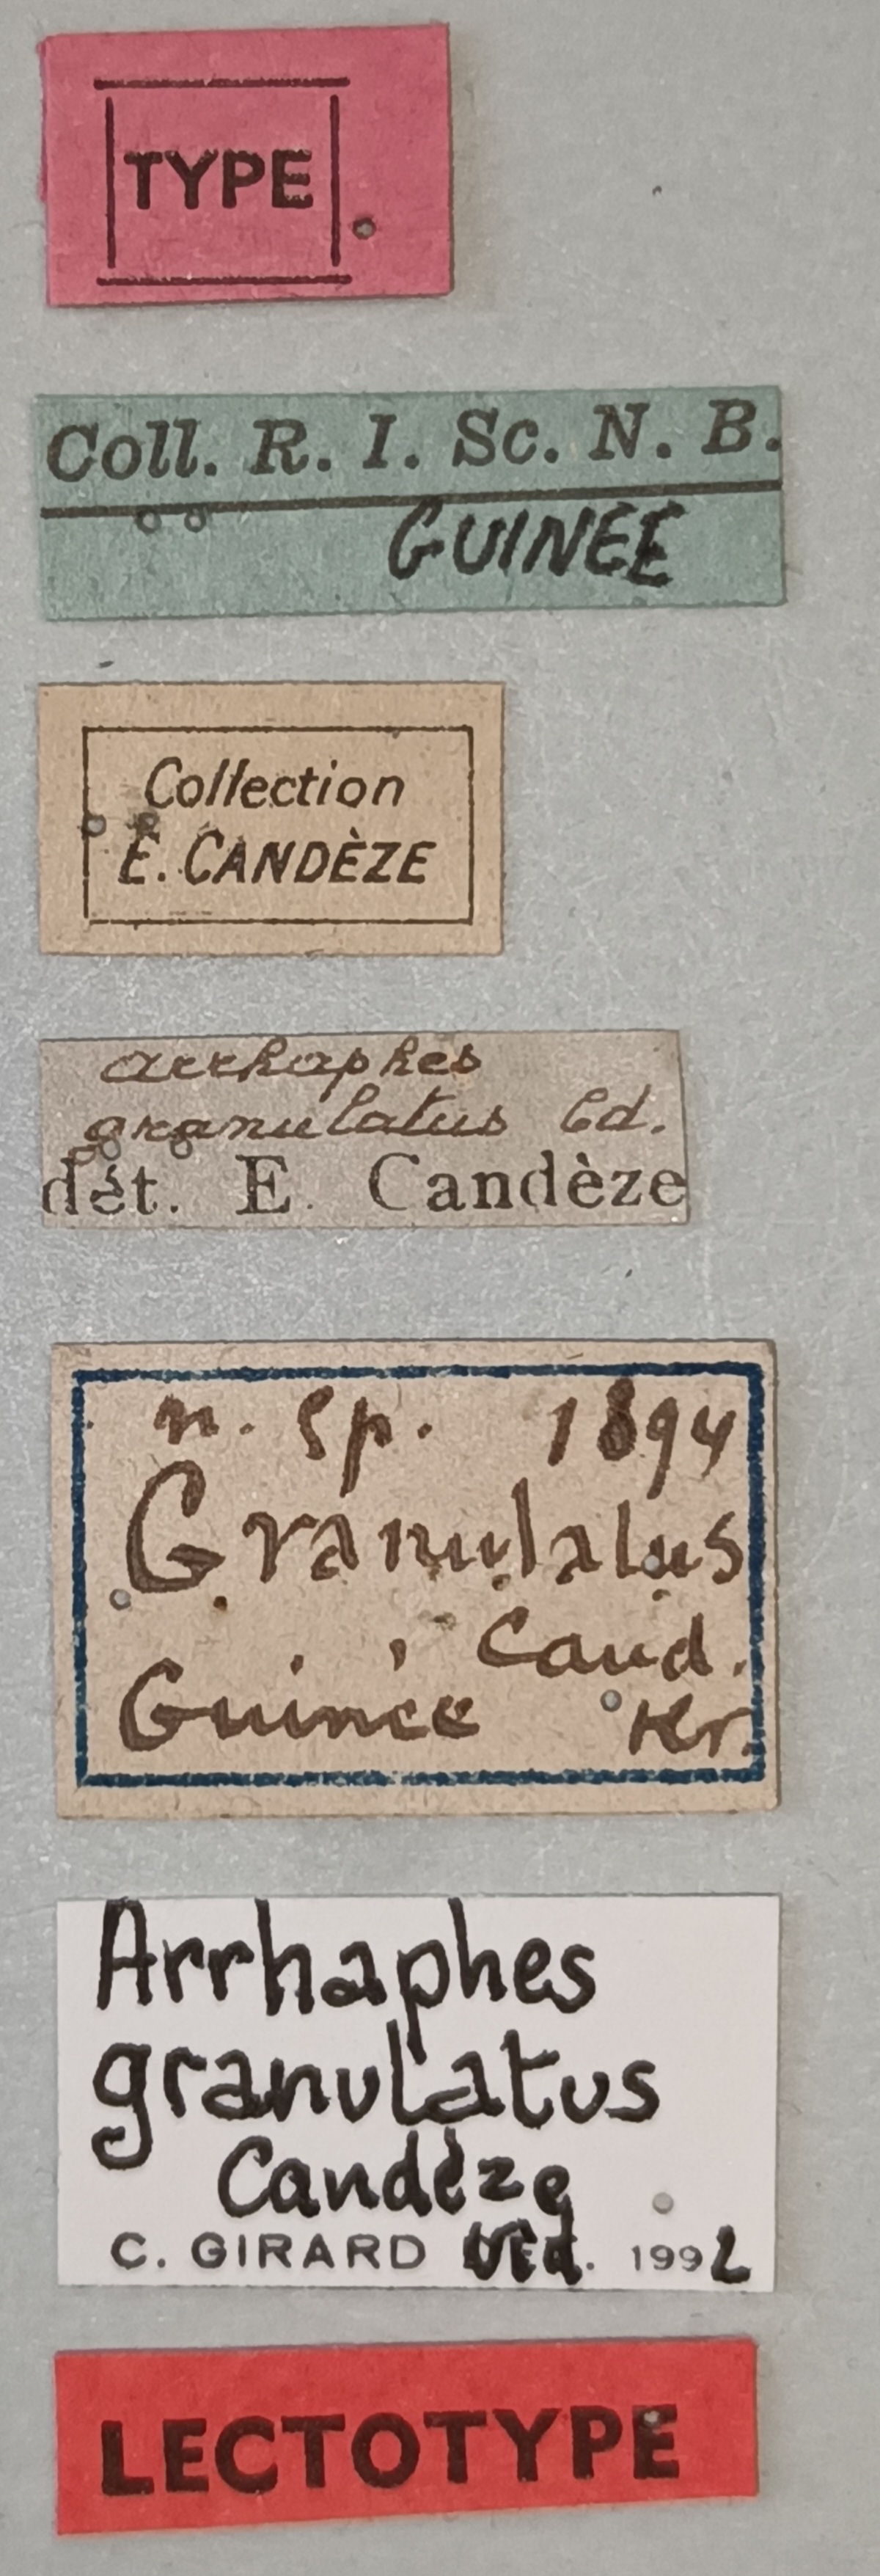 TYPE
Coll. R. I. Sc. N. B.
GUINEE
Collection
E. CANDÈZE
arrhaphes
granulatus Cd.
dét. E. Candèze
n. sp. 1894
Granulatus
Cand.
Guinée Kr.
Arrhaphes
granulatus
Candèze
C. GIRARD Ved. 1992
LECTOTYPE